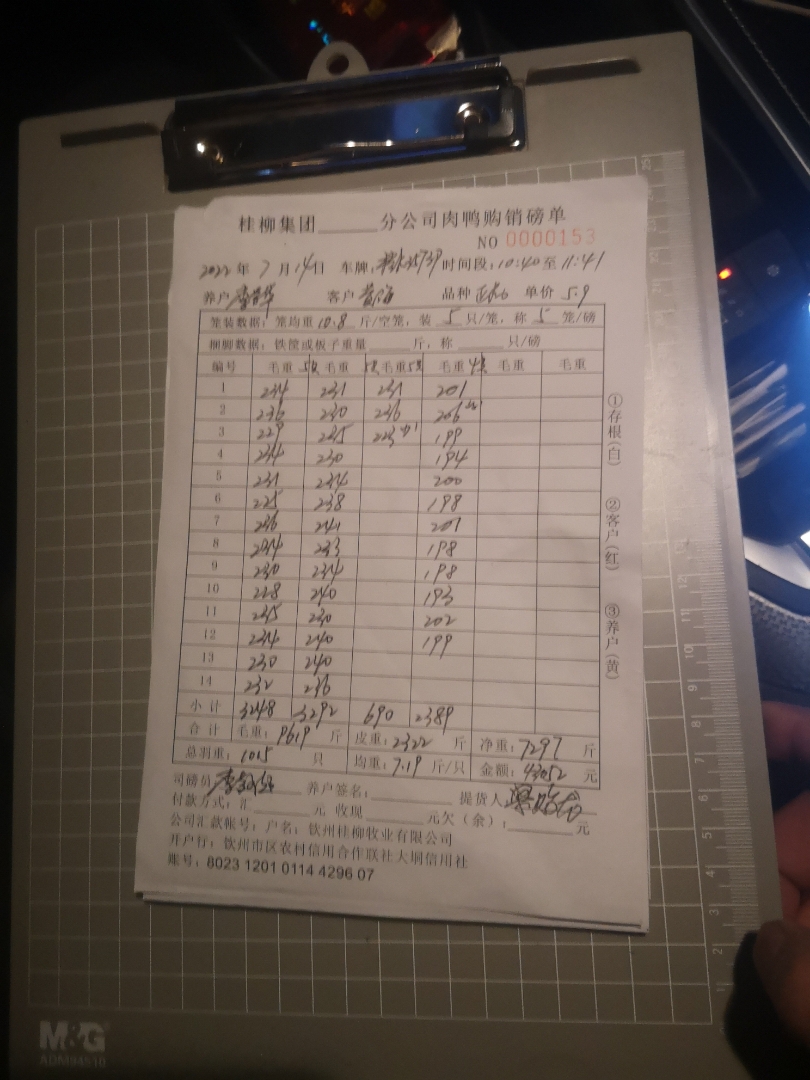 桂柳集团______分公司肉鸭购销磅单
NO 0000153
2022年 7月 14日 车牌: 时间段:10:40至11:41
养户 客户 品种 单价 5.9
笼装数据: 笼均重 10.8 斤/空笼, 装 5 只/笼, 称 5 笼/磅
捆脚数据: 铁筐或板子重量______斤, 称______只/磅
编号 毛重 毛重 毛重 毛重 毛重 毛重
1 234 231 231 201
2 236 230 236 206
3 229 235 223 199
4 234 230 194
5 231 234 200
6 225 238 198
7 236 241 201
8 234 233 198
9 230 234 198
10 228 240 193
11 235 230 202
12 234 240 199
13 230 240
14 232 236
小计 3248 3292 690 2389
合计 毛重: 9619 斤 皮重: 2322 斤 净重: 7297 斤
总羽重: 1015 只 均重: 7.19 斤/只 金额: 43052 元
司磅员 养户签名:______ 提货人
付款方式: 汇______元 收现______元欠(余):______元
公司汇款帐号: 户名: 钦州桂柳牧业有限公司
开户行: 钦州市区农村信用合作联社大垌信用社
账号: 8023 1201 0114 4296 07
①存根(白) ②客户(红) ③养户(黄)
M&G
ADM94510